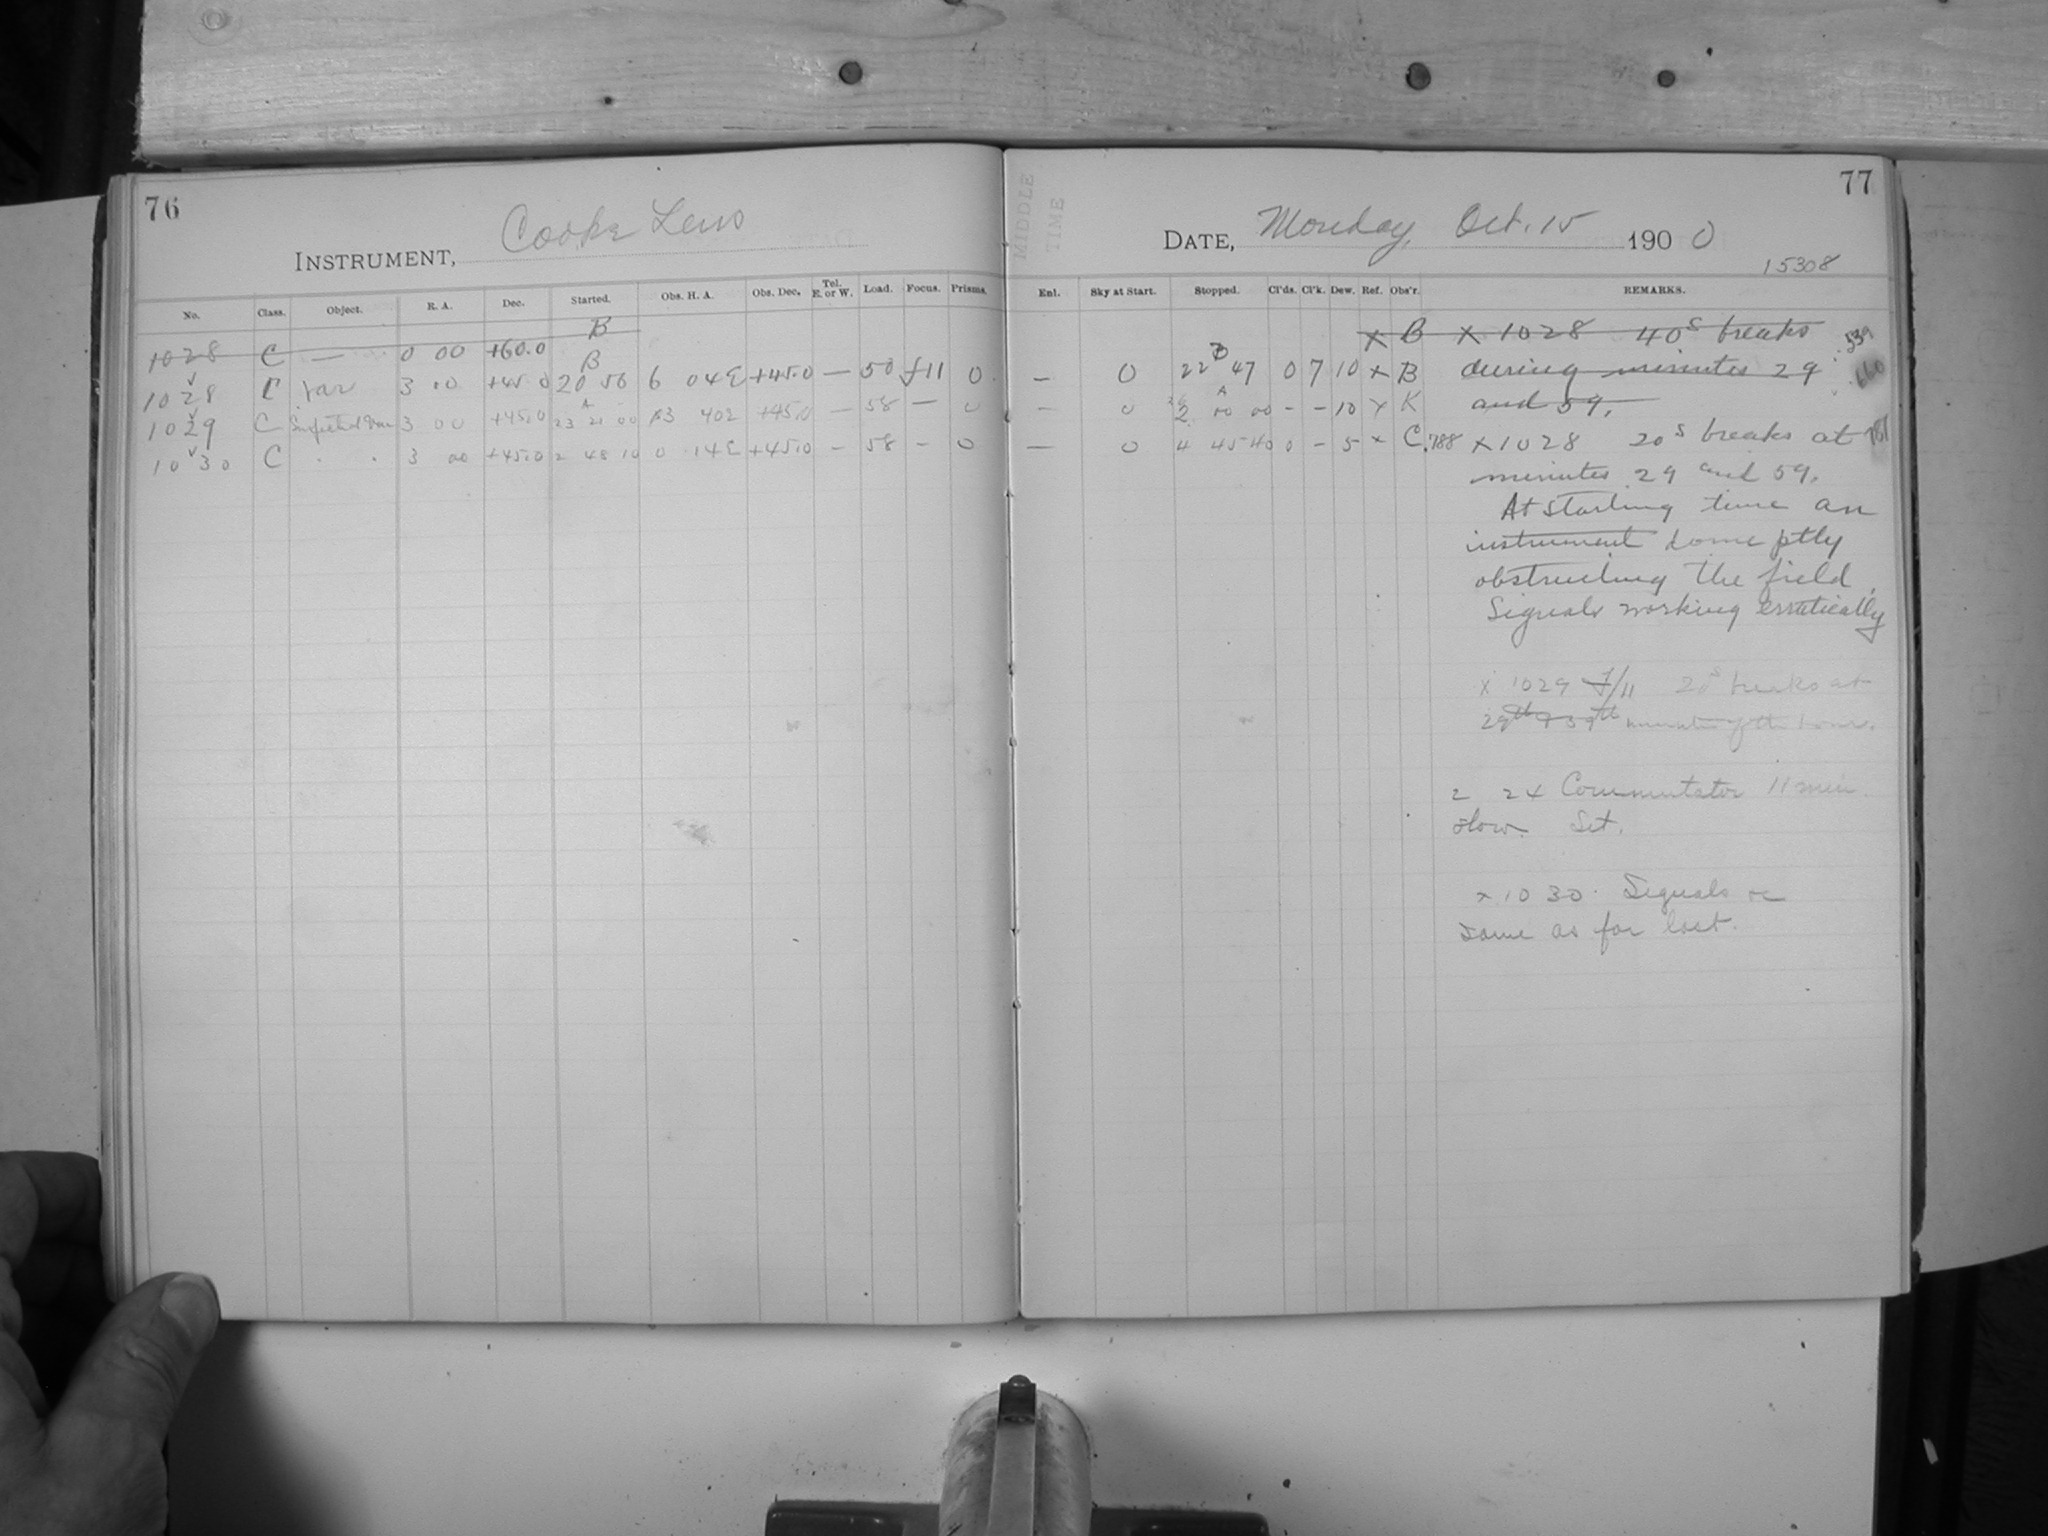 76
INSTRUMENT, Cooke Lens
No. Class. Object. R. A. Dec. Started. Obs. H. A. Obs. Dec. Tel. E. or W. Load. Focus. Prisms.
B
1028 C — 0 00 +60.0
B
1028 C Var 3 00 +45.0 20 56 6 04E +45.0 — 50 f11 0
A
1029 C 3 00 +45.0 23 21 00 3 40E +45.0 — 58 — 0
1030 C " " 3 00 +45.0 2 48 10 0 14E +45.0 — 58 — 0
MIDDLE TIME
77
DATE, Monday, Oct. 15 1900
15308
Enl. Sky at Start. Stopped. Cl'ds. Cl'k. Dew. Ref. Obs'r. REMARKS.
x B x 1028 40s breaks 539
— 0 22 47 0 7 10 x B during minutes 29 660
A
— 0 2 00 00 - - 10 x K and 59.
— 0 4 45 40 0 - 5 x C .788 x 1028 20s breaks at 787
minutes 29 and 59.
At starting time an
instrument dome ptly
obstructing the field.
Signals working erratically
x 1029 f/11 20s breaks at
29th & 59th minute of the hour.
2 24 Commutator 11 min.
slow. Set.
x 1030. Signals
same as for last.